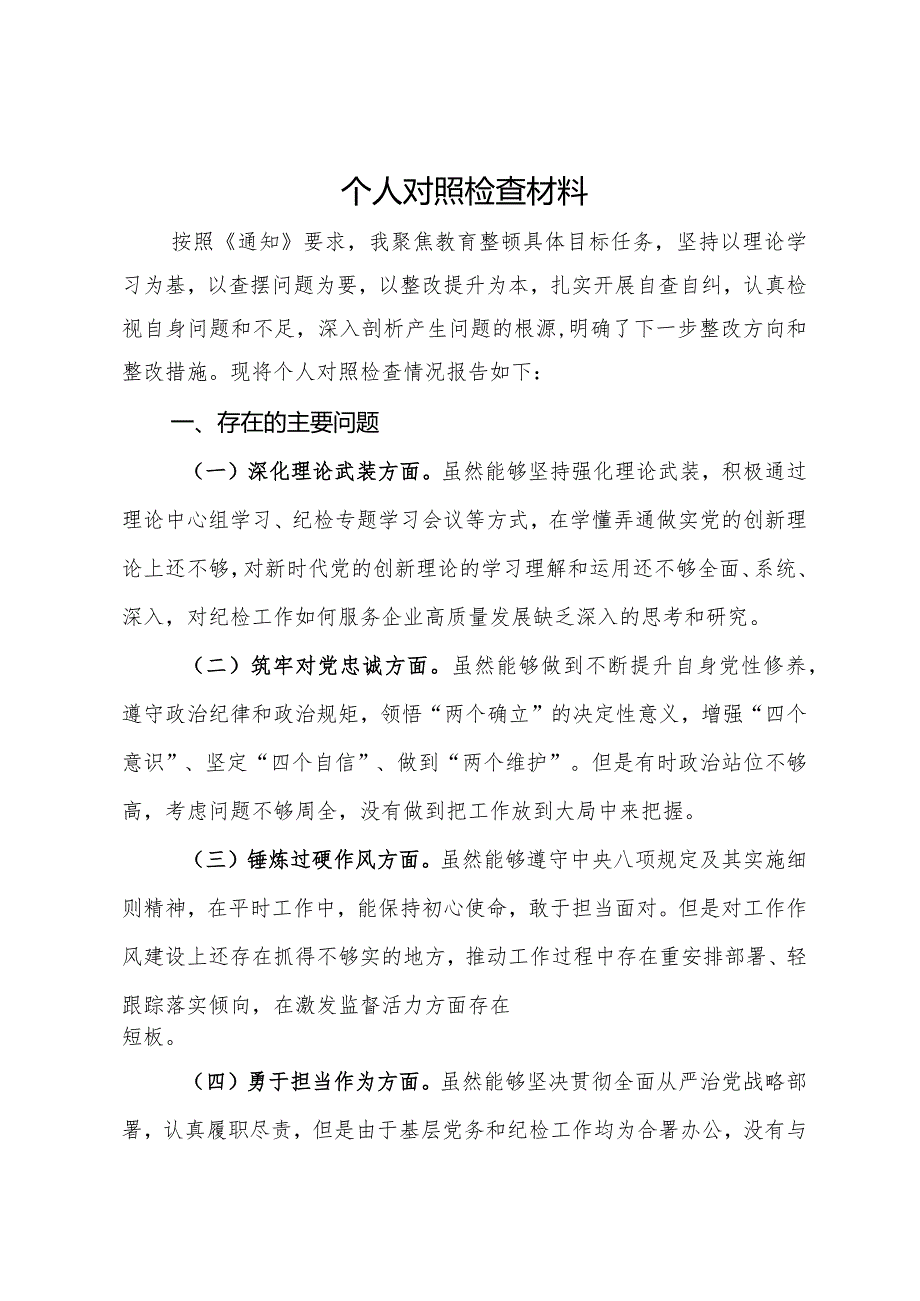 个人对照检查材料
按照《通知》要求，我聚焦教育整顿具体目标任务，坚持以理论学
习为基，以查摆问题为要，以整改提升为本，扎实开展自查自纠，认真检
视自身问题和不足，深入剖析产生问题的根源,明确了下一步整改方向和
整改措施。现将个人对照检查情况报告如下：
一、存在的主要问题
（一）深化理论武装方面。虽然能够坚持强化理论武装，积极通过
理论中心组学习、纪检专题学习会议等方式，在学懂弄通做实党的创新理
论上还不够，对新时代党的创新理论的学习理解和运用还不够全面、系统、
深入，对纪检工作如何服务企业高质量发展缺乏深入的思考和研究。
（二）筑牢对党忠诚方面。虽然能够做到不断提升自身党性修养，
遵守政治纪律和政治规矩，领悟“两个确立”的决定性意义，增强“四个
意识”、坚定“四个自信”、做到“两个维护”。但是有时政治站位不够
高，考虑问题不够周全，没有做到把工作放到大局中来把握。
（三）锤炼过硬作风方面。虽然能够遵守中央八项规定及其实施细
则精神，在平时工作中，能保持初心使命，敢于担当面对。但是对工作作
风建设上还存在抓得不够实的地方，推动工作过程中存在重安排部署、轻
跟踪落实倾向，在激发监督活力方面存在
短板。
（四）勇于担当作为方面。虽然能够坚决贯彻全面从严治党战略部
署，认真履职尽责，但是由于基层党务和纪检工作均为合署办公，没有与